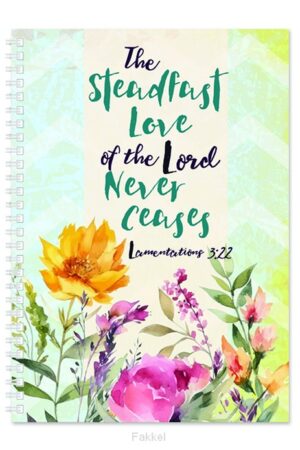 The
Steadfast
Love
of the Lord
Never
Ceases
Lamentations 3:22
Fakkel